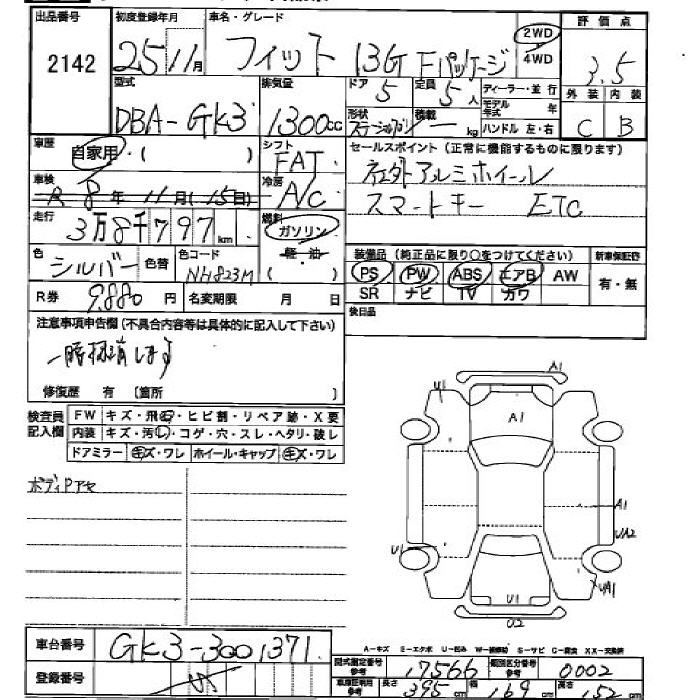 出品番号 初度登録年月 車名・グレード 2WD 4WD 評価点
2142 25 11月 フィット 13G Fパッケージ 3.5
型式 排気量 ドア 定員 ディーラー・並行 外装 内装
DBA-GK3 1300cc 5 5人 モデル年式 年 C B
形状 積載 kg ハンドル 左・右
車歴 自家用・( ) シフト FAT セールスポイント(正常に機能するものに限ります)
車検 R8年11月(15日) 冷房 A/C 社外アルミホイール
走行 3万8千797km 燃料 ガソリン・軽油 スマートキー ETC
色 シルバー 色替 色コード NH823M 装備品(純正品に限り○をつけてください) 新車保証書
PS PW ABS エアB AW 有・無
R券 9,880円 名変期限 月 日 SR ナビ TV カワ
注意事項申告欄(不具合内容等は具体的に記入して下さい) 後日品
一時抹消します
修復歴 有 〔箇所 〕
検査員記入欄 FW キズ・飛石・ヒビ割・リペア跡・X要
内装 キズ・汚し・コゲ・穴・スレ・ヘタリ・破レ
ドアミラー キズ・ワレ ホイール・キャップ キズ・ワレ
ボディPアセ
A1
U1
A1
A1
UA2
U1
UA1
U1
U2
車台番号 GK3-3001371
A-キズ E-エクボ U-凹み W-補修跡 S-サビ C-腐食 XX-交換済
登録番号
型式指定番号 参考 17566 類別区分番号 参考 0002
車庫証明用 参考 長さ 395cm 幅 169cm 高さ 152cm